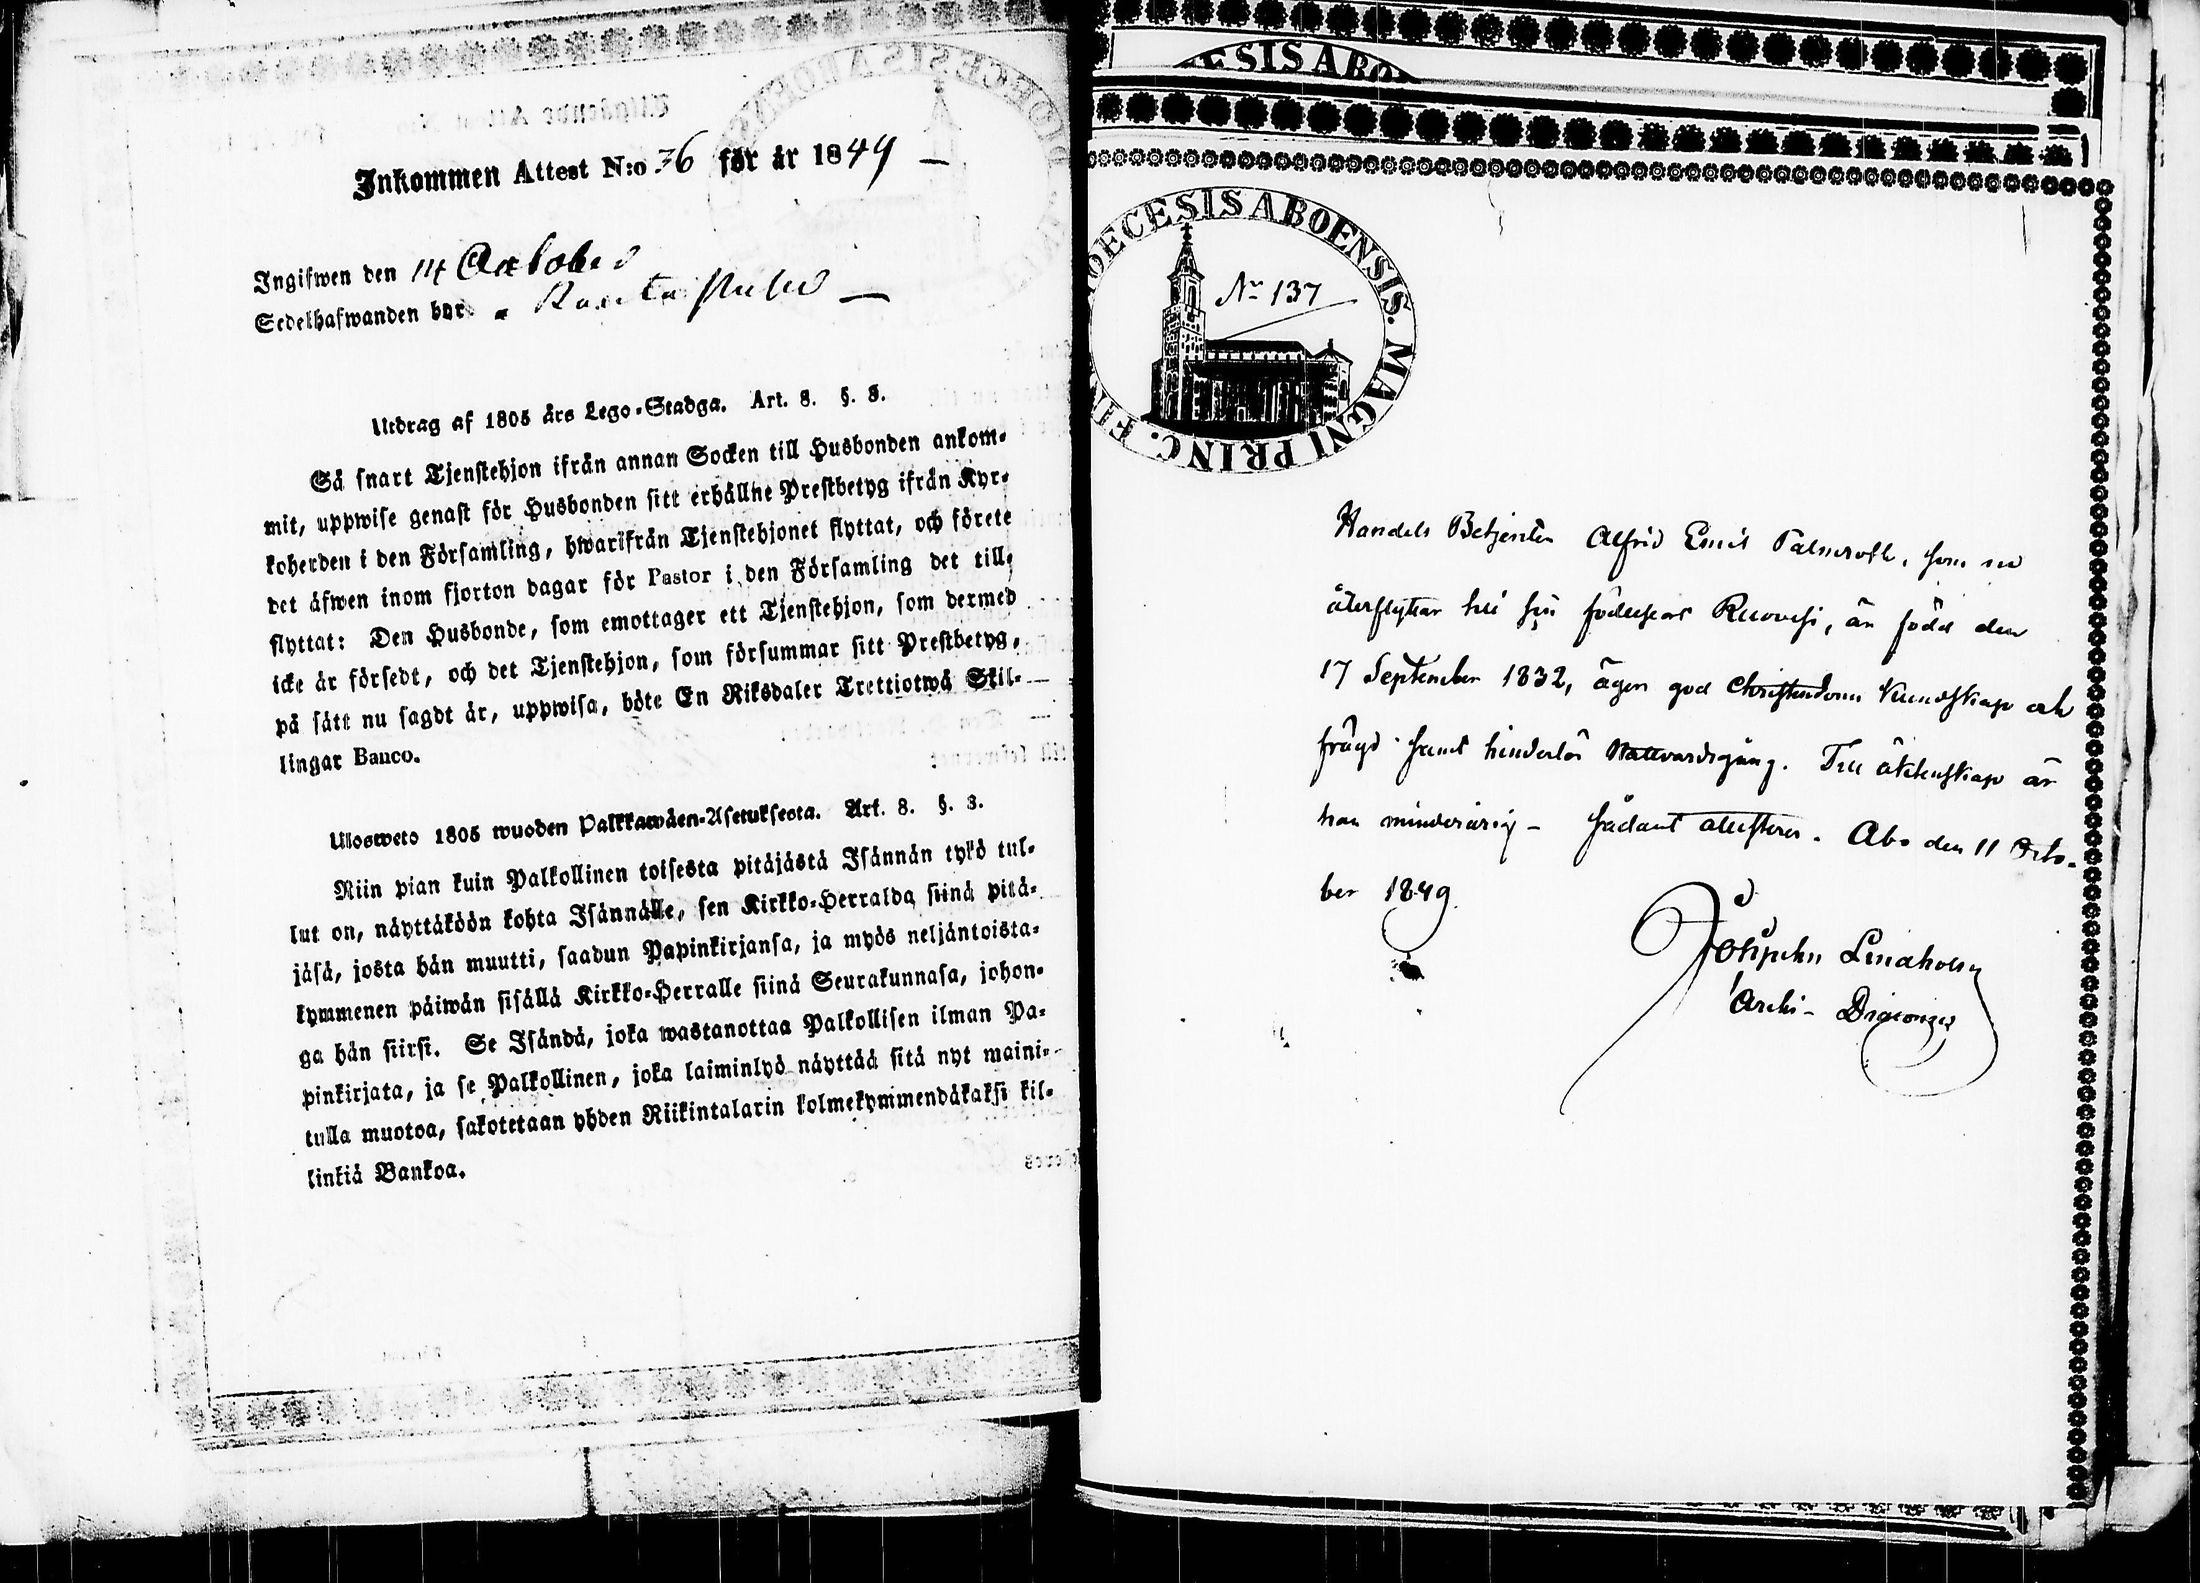 Inkommen Attest N:o 36 för år 1849 —
Ingifwen den 14 October
Sedelhafwanden bor
Utdrag af 1805 års Lego-Stadga. Art. 8. §. 3.
Så snart Tjenstehjon ifrån annan Socken till Husbonden ankom-
mit, uppwise genast för Husbonden sitt erhållne Prestbetyg ifrån Kyr-
koherden i den Församling, hwarifrån Tjenstehjonet flyttat, och förete
det äfwen inom fjorton dagar för Pastor i den Församling det till-
flyttat: Den Husbonde, som emottager ett Tjenstehjon, som dermed
icke är försedt, och det Tjenstehjon, som försummar sitt Prestbetyg,
på sätt nu sagdt är, uppwisa, böte En Riksdaler Trettiotwå Skil-
lingar Banco.
Ulosweto 1805 wuoden Palkkawäen-Asetuksesta. Art. 8. §. 3.
Niin pian kuin Palkollinen toisesta pitäjästä Isännän tykö tul-
lut on, näyttäköön kohta Isännälle, sen Kirkko-Herralda siinä pitä-
jäsä, josta hän muutti, saadun Papinkirjansa, ja myös neljäntoista-
kymmenen päiwän sisällä Kirkko-Herralle siinä Seurakunnasa, johon-
ga hän siirsi. Se Isändä, joka wastanottaa Palkollisen ilman Pa-
pinkirjata, ja se Palkollinen, joka laiminlyö näyttää sitä nyt maini-
tulla muotoa, sakotetaan yhden Riikintalarin kolmekymmendäkaksi kil-
linkiä Bankoa.
ESIS ABO
OECESIS ABOENSIS. MAGNI PRINC. FIN
No 137
Handels Betjenten Alfrid Emil Palmroth, som nu
återflyttar till sin födelseort Ruovesi, är född den
17 September 1832, äger god Christendoms kundskap och
frägd samt hinderlös Nattvardsgång. Till äktenskap är
han minderårig — Sådant attesteras. Åbo den 11 Octo-
ber 1849.
Lindholm
Archi-Diaconus